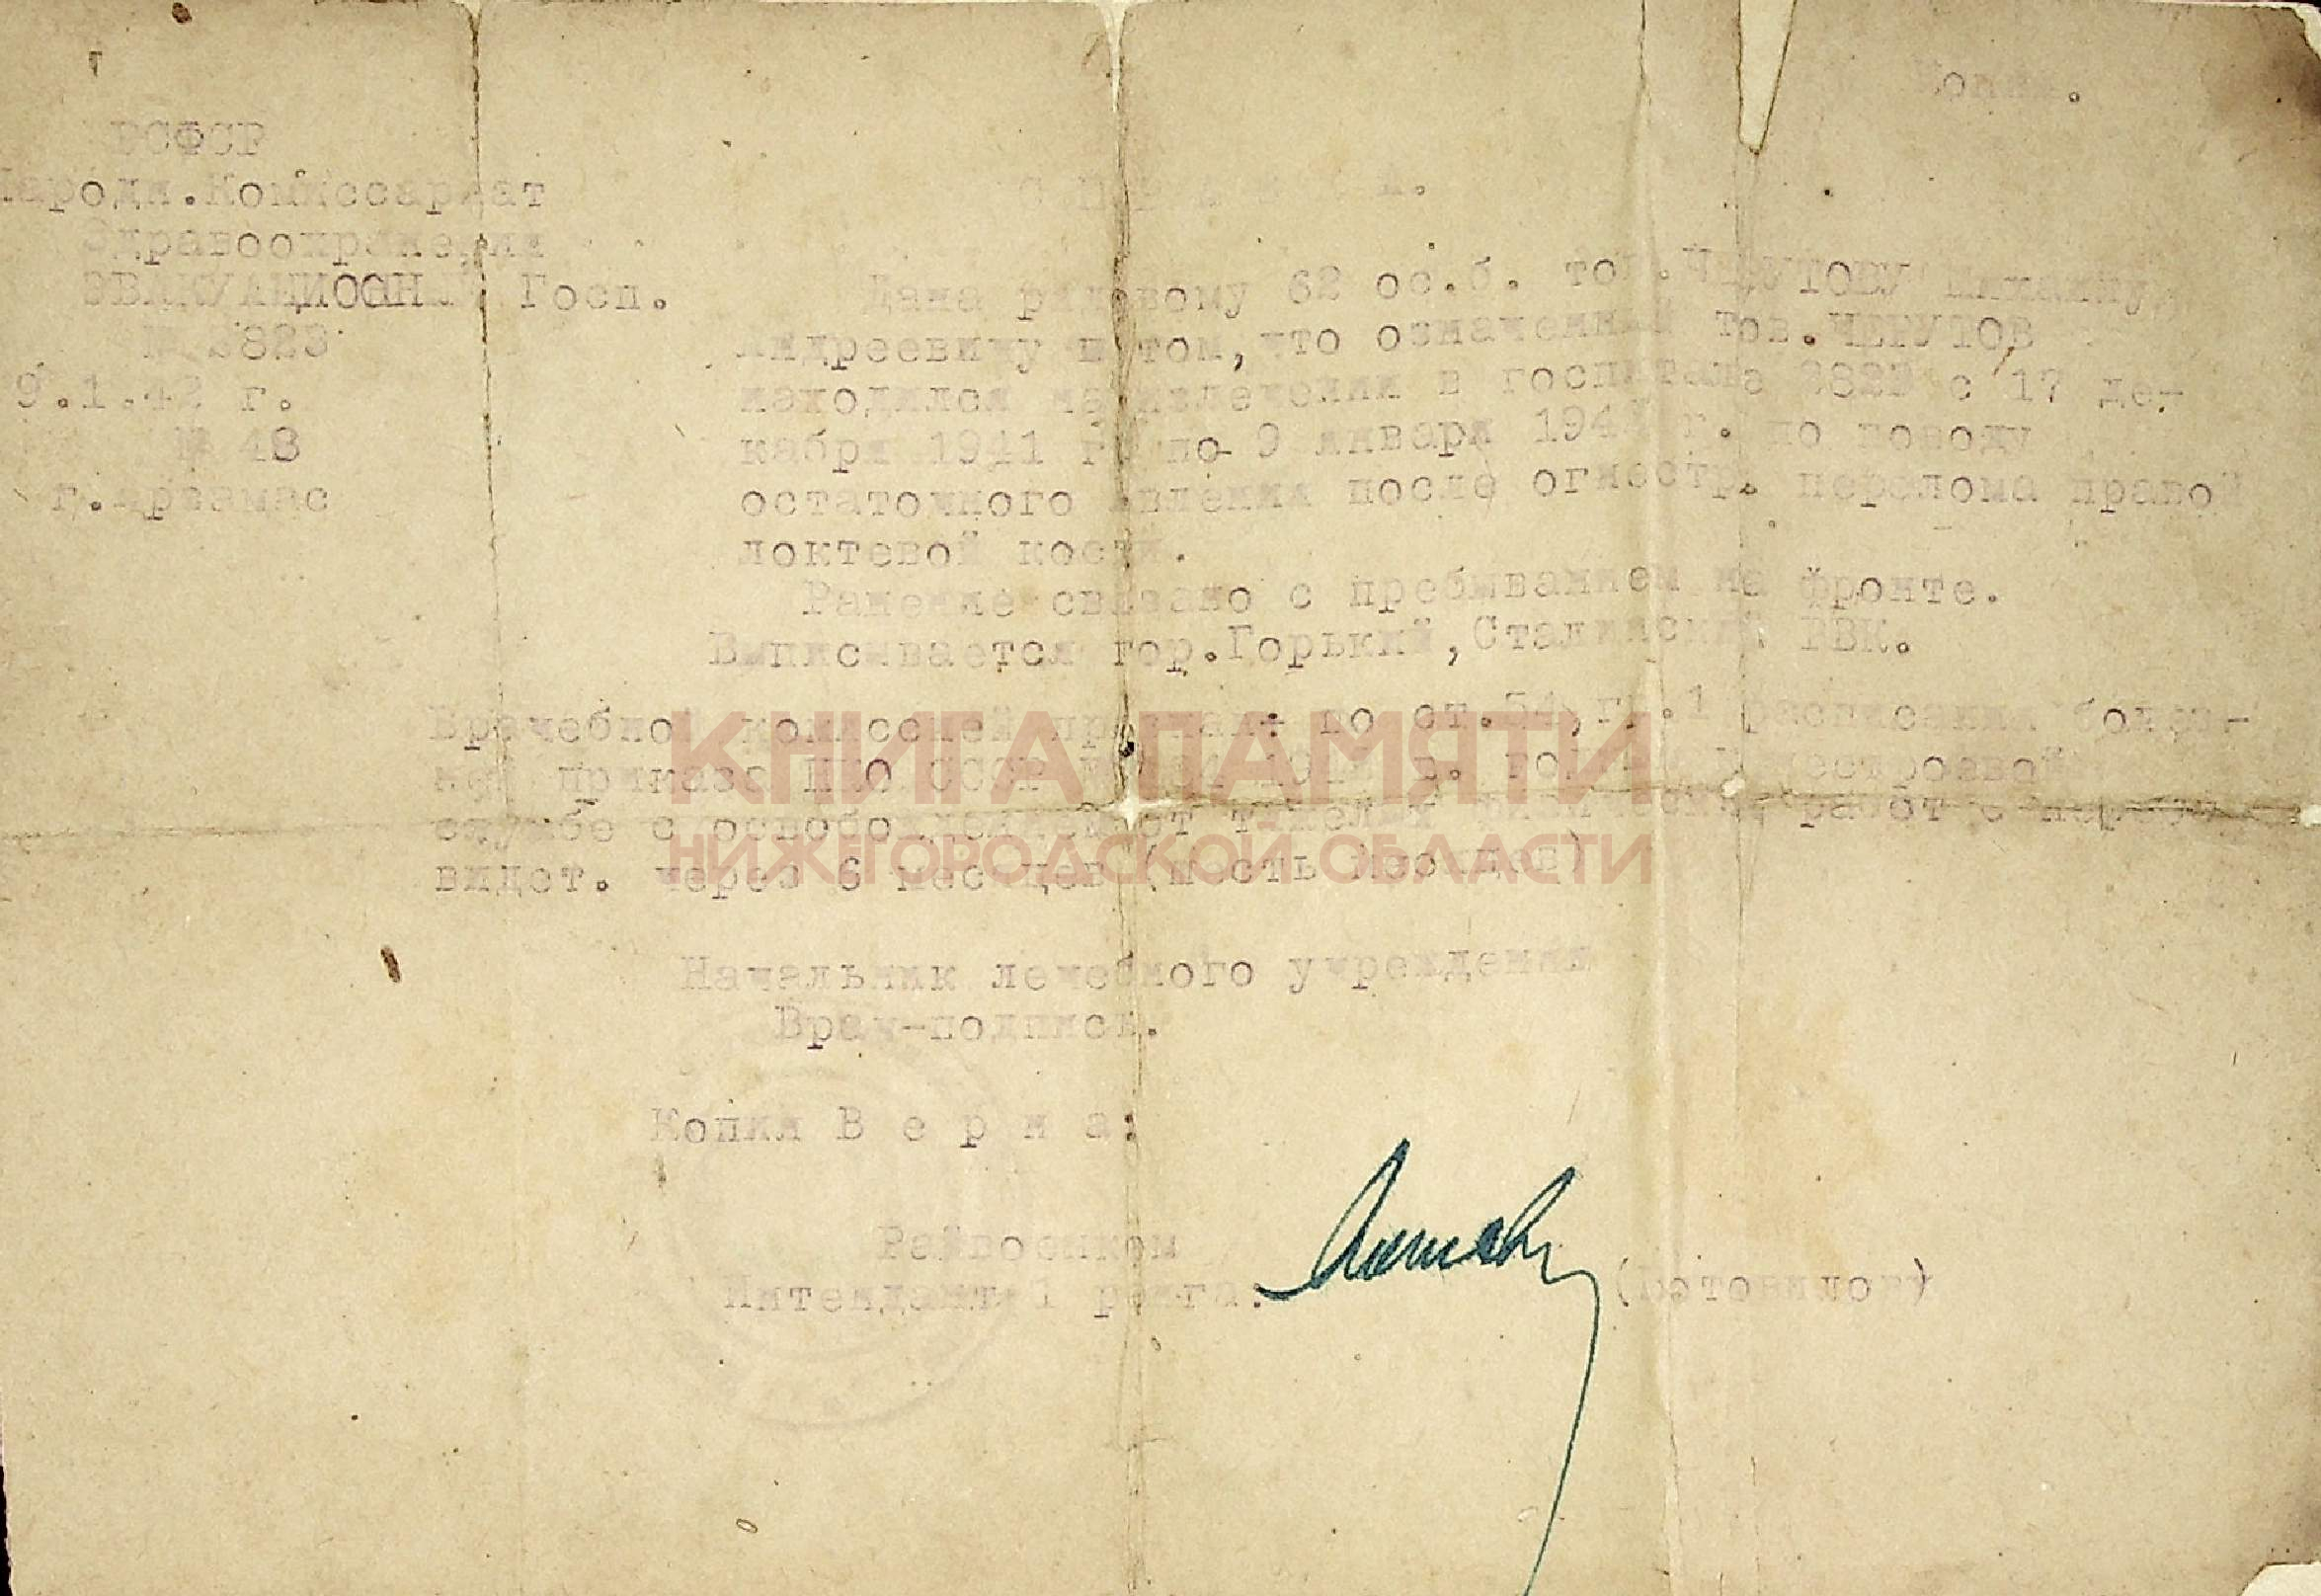 Копия.
РСФСР
Народн.Комиссариат
Здравоохранения
ЭВАКУАЦИООНЫЙ Госп.
№ 2823
9.1.42 г.
№ 48
г.Арзамас
С П Р А В К А.
Дана рядовому 62 ос.б. тов.ЧЕРУТОВУ Михаилу
Андреевичу в том, что означенный тов.ЧЕРУТОВ
находился на излечении в госпитале 2823 с 17 де-
кабря 1941 г. по 9 января 1942 г. по поводу
остаточного явления после огнестр. перелома правой
локтевой кости.
Ранение связано с пребыванием на фронте.
Выписывается гор.Горький,Сталинский РВК.
Врачебной комиссией признан: по ст.54,гр.1 расписания болез-
ней приказа НКО СССР нестроевой
службе с освобождением от тяжелых физических работ с переос
видет. через 6 месяцев (шесть месяцев)
КНИГА ПАМЯТИ
НИЖЕГОРОДСКОЙ ОБЛАСТИ
Начальник лечебного учреждения
Врач-подписи.
Копия В е р н а:
Райвоенком
Интендант 1 ранга: